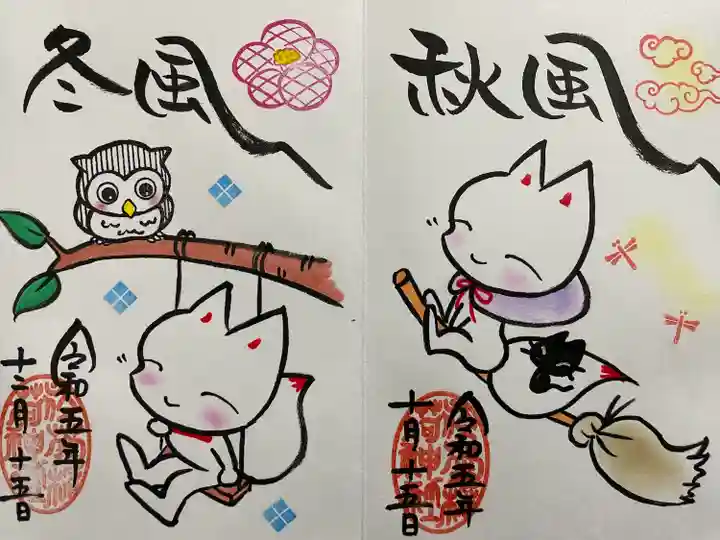 秋風
令和五年
十月十五日
冬風
令和五年
十二月十五日